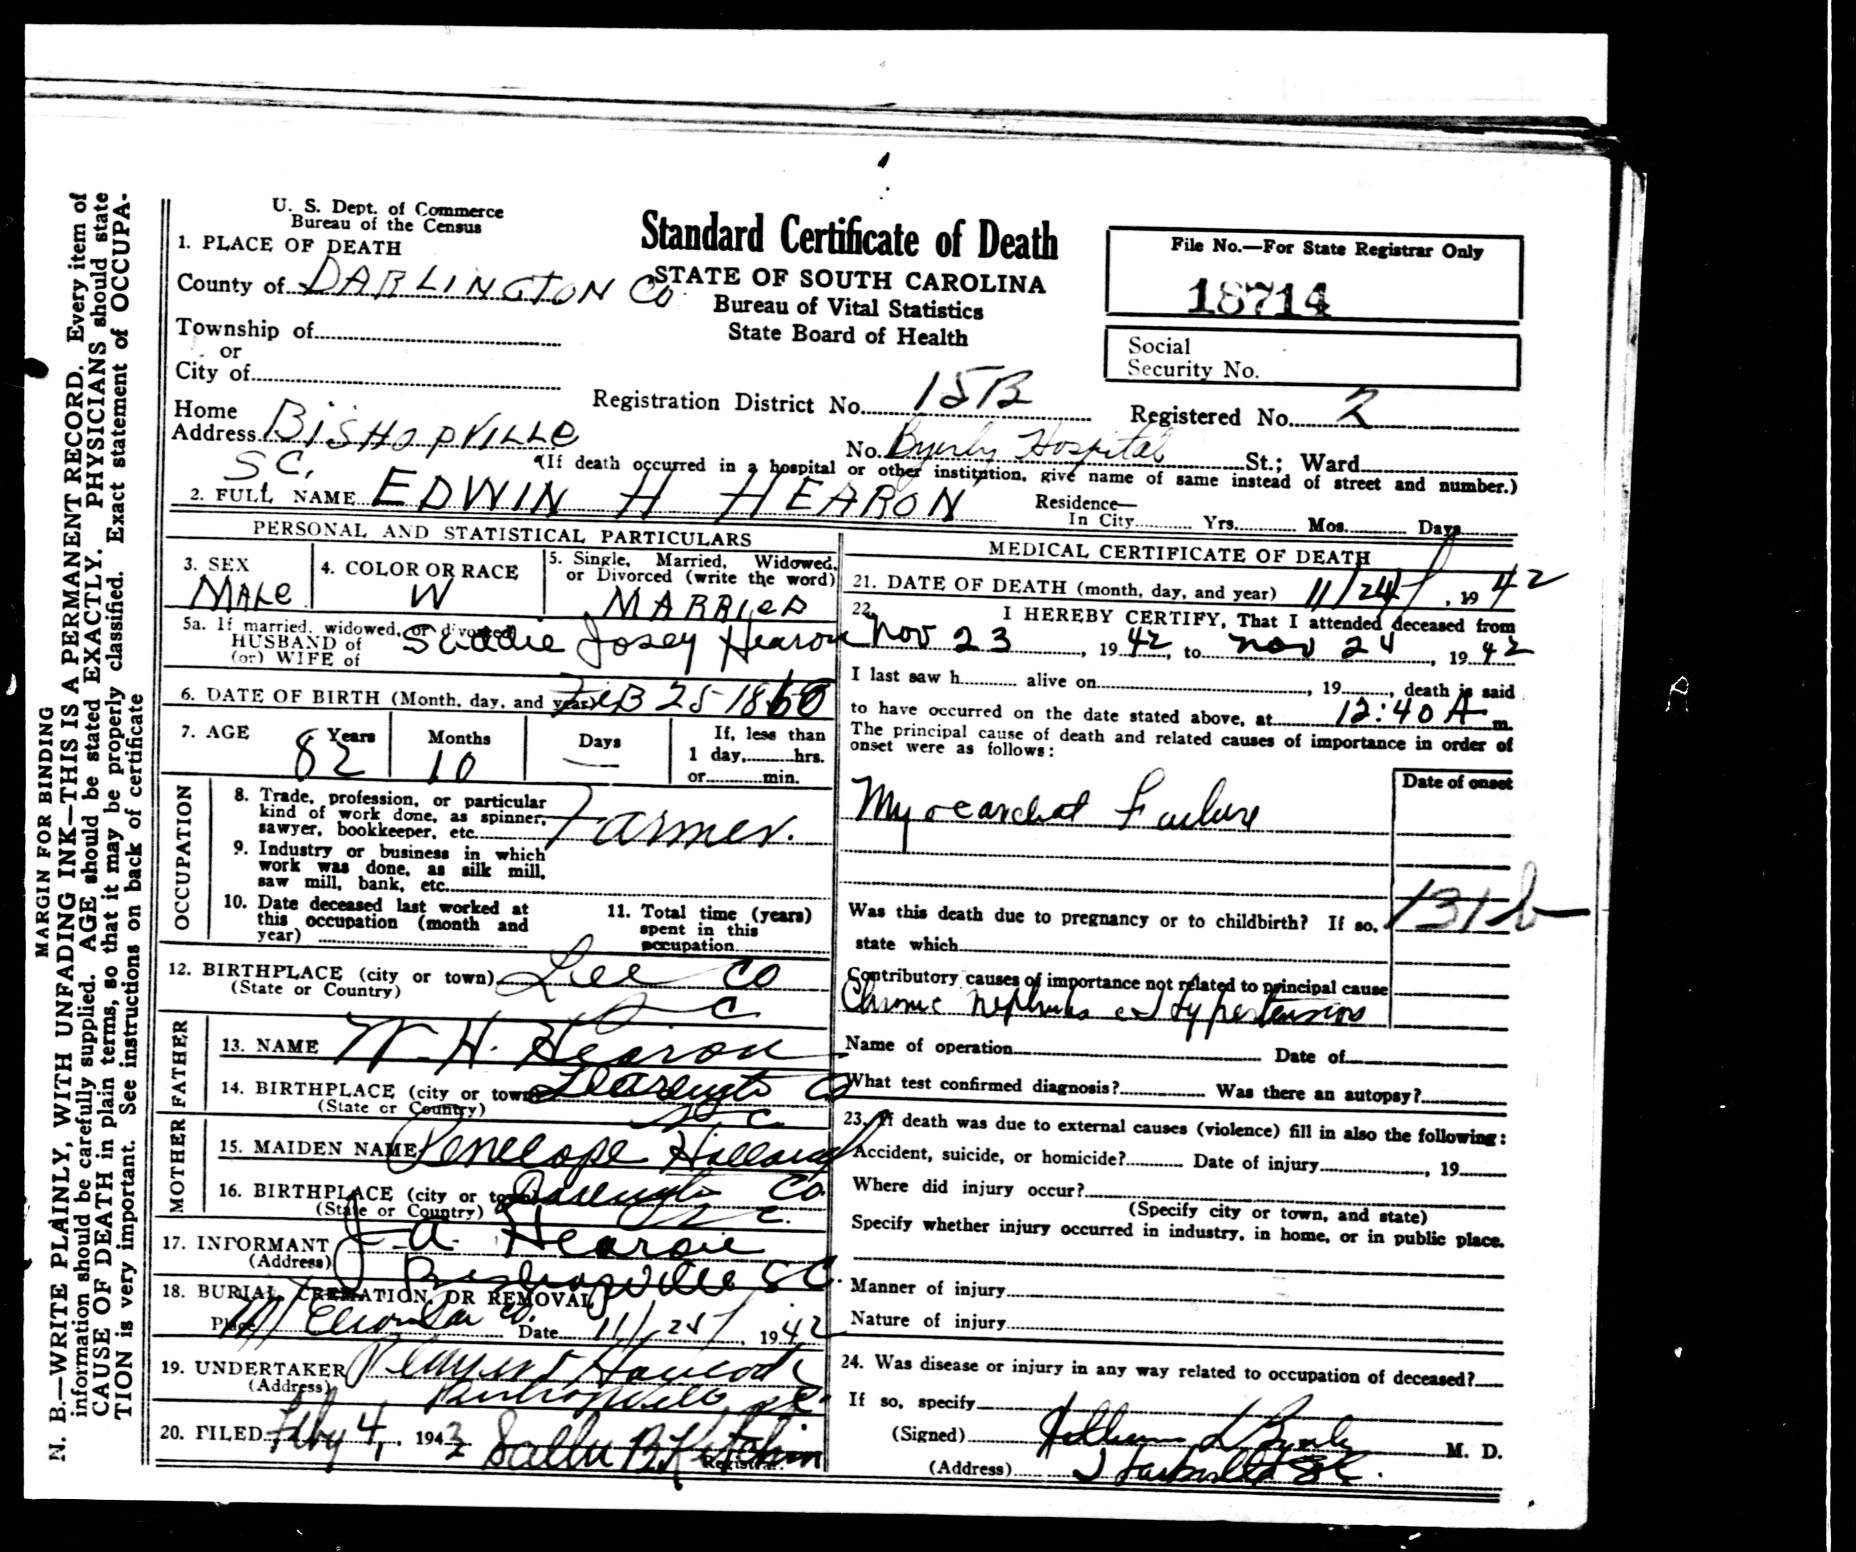 U. S. Dept. of Commerce
Bureau of the Census
1. PLACE OF DEATH
County of DARLINGTON CO
Township of
or
City of
Home
Address BISHOPVILLE
SC.
Standard Certificate of Death
STATE OF SOUTH CAROLINA
Bureau of Vital Statistics
State Board of Health
File No.—For State Registrar Only
18714
Social
Security No.
Registration District No. 15B
Registered No. 2
No. Byerly Hospital St.; Ward
(If death occurred in a hospital or other institution, give name of same instead of street and number.)
2. FULL NAME EDWIN H HEARON
Residence—
In City Yrs. Mos. Days
PERSONAL AND STATISTICAL PARTICULARS
3. SEX
MALE
4. COLOR OR RACE
W
5. Single, Married, Widowed,
or Divorced (write the word)
MARRIED
5a. If married, widowed, or divorced
HUSBAND of
(or) WIFE of
Josey Hearon
6. DATE OF BIRTH (Month, day, and year) FEB 25 1860
7. AGE
82 Years
Months 10
Days —
If, less than
1 day, hrs.
or min.
OCCUPATION
8. Trade, profession, or particular
kind of work done, as spinner,
sawyer, bookkeeper, etc. Farmer.
9. Industry or business in which
work was done, as silk mill,
saw mill, bank, etc.
10. Date deceased last worked at
this occupation (month and
year)
11. Total time (years)
spent in this
occupation
12. BIRTHPLACE (city or town) Lee CO
(State or Country) S C
FATHER
13. NAME W. H. Hearon
14. BIRTHPLACE (city or town) Co
(State or Country) S C.
MOTHER
15. MAIDEN NAME Penelope Holland
16. BIRTHPLACE (city or town) Co
(State or Country) S C.
17. INFORMANT J. A. Hearon
(Address) Bishopville S C.
18. BURIAL, CREMATION, OR REMOVAL
Place Date 11/25/, 1942
19. UNDERTAKER
(Address)
20. FILED Feby 4, 1943
Registrar.
MEDICAL CERTIFICATE OF DEATH
21. DATE OF DEATH (month, day, and year) 11/24/, 1942
22. I HEREBY CERTIFY, That I attended deceased from
Nov 23, 1942, to Nov 24, 1942
I last saw h alive on, 19, death is said
to have occurred on the date stated above, at 12:40 A m.
The principal cause of death and related causes of importance in order of
onset were as follows:
Date of onset
Myocardial Failure
131 b
Was this death due to pregnancy or to childbirth? If so,
state which
Contributory causes of importance not related to principal cause
Chronic Nephritis Hypertension
Name of operation Date of
What test confirmed diagnosis? Was there an autopsy?
23. If death was due to external causes (violence) fill in also the following:
Accident, suicide, or homicide? Date of injury, 19
Where did injury occur?
(Specify city or town, and state)
Specify whether injury occurred in industry, in home, or in public place.
Manner of injury
Nature of injury
24. Was disease or injury in any way related to occupation of deceased?
If so, specify
(Signed) M. D.
(Address)
MARGIN FOR BINDING
N. B.—WRITE PLAINLY, WITH UNFADING INK—THIS IS A PERMANENT RECORD. Every item of
information should be carefully supplied. AGE should be stated EXACTLY. PHYSICIANS should state
CAUSE OF DEATH in plain terms, so that it may be properly classified. Exact statement of OCCUPA-
TION is very important. See instructions on back of certificate